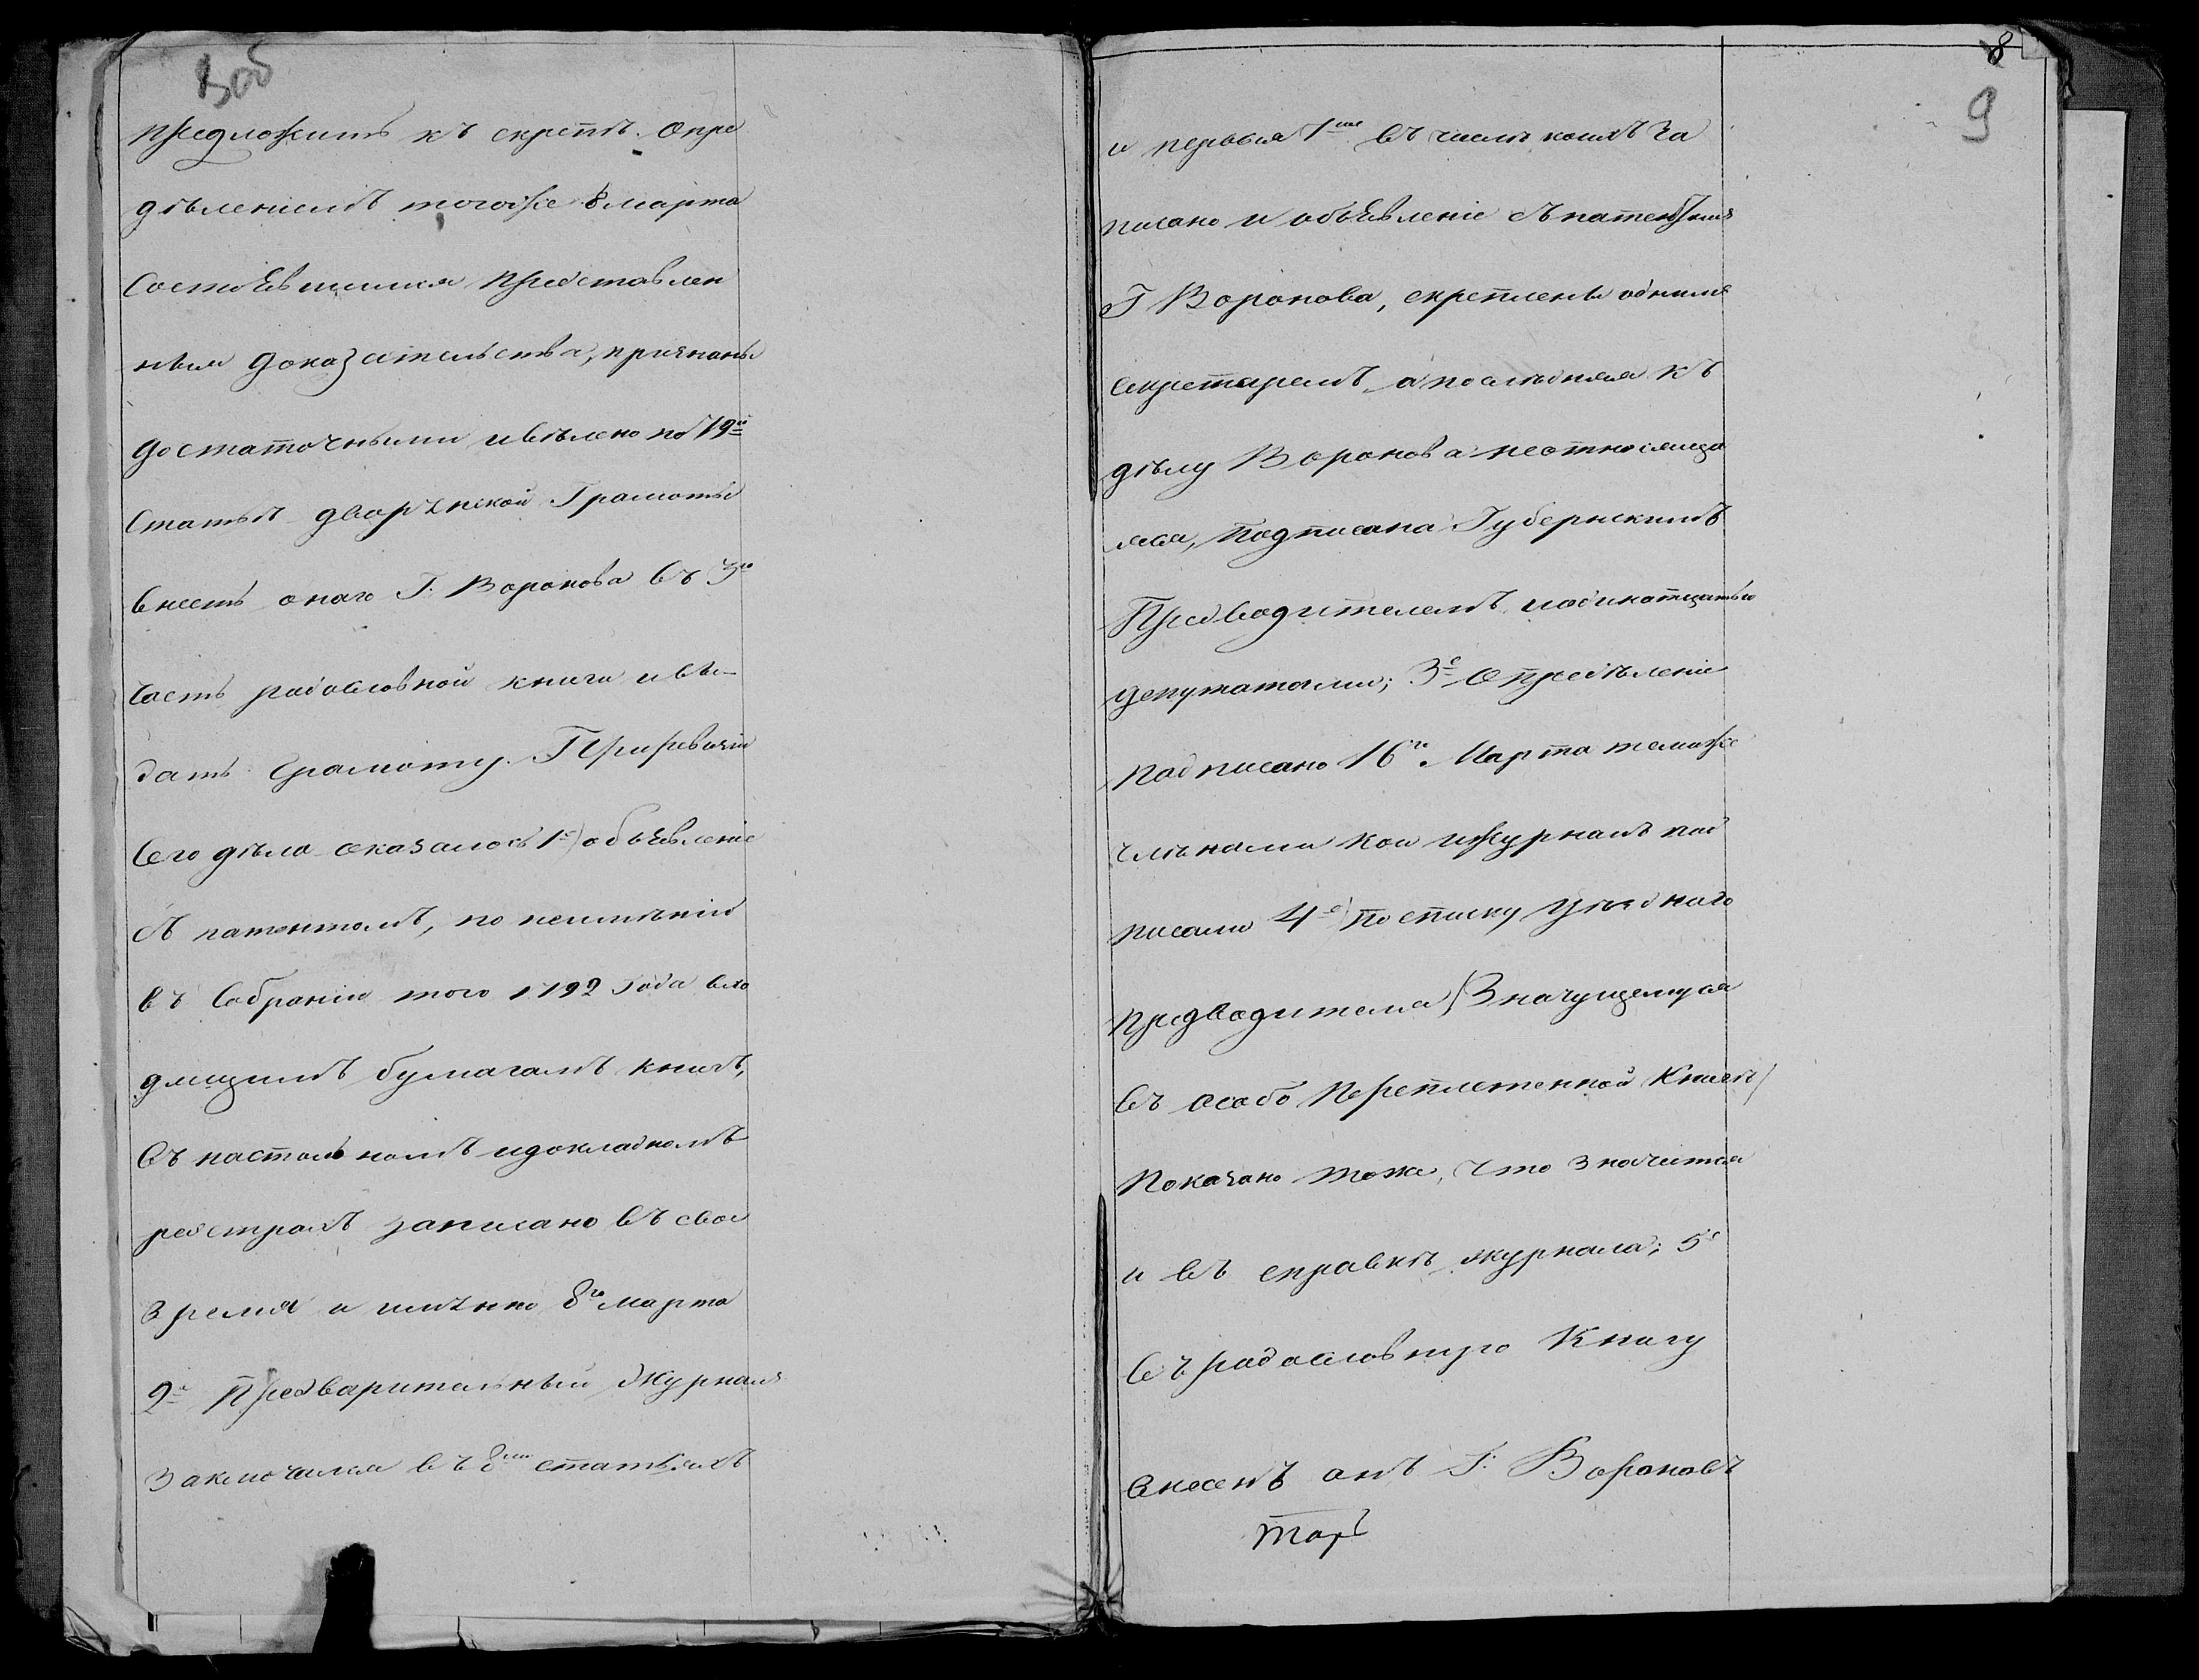 8об
предложить къ скрепѣ. Опре
дѣленіемъ тогоже 8 марта
состоявшимся представлен
ныя доказательства, признаны
достаточными и велено по 79й
статьѣ дворянской Грамоты
внесть онаго Г. Воронова въ 3ю
часть родословной книги и вы-
дать грамоту. При ревизіи
сего дѣла оказалось 1е) объявленіе
съ патентомъ, по неимѣнію
въ Собраніи того 1792 года вхо
дящимъ бумагамъ книгъ,
въ настольномъ и докладномъ
реэстрахъ записано въ свое
время и имянно 8го марта
2е Предварительный Журналъ
заключился въ 8ми статьяхъ
8
9
и первыя 7ме въ числѣ коихъ за
писано и объявленіе съ патентомъ
Г Воронова, скреплены однимъ
секретаремъ, а последняя къ
дѣлу Воронова неотносяща
яся, подписана Губернскимъ
Предводителемъ и одинотцатью
депутатами; 3е Опредѣленіе
подписано 16го Марта темиже
членами кои и Журналъ под
писали 4е) По списку уѣзднаго
предводителя (Значущемуся
въ особо переплетенной Книгѣ)
показано тоже, что значится
и въ справкѣ журнала; 5е
въ родословную Книгу
внесенъ онъ Г: Вороновъ